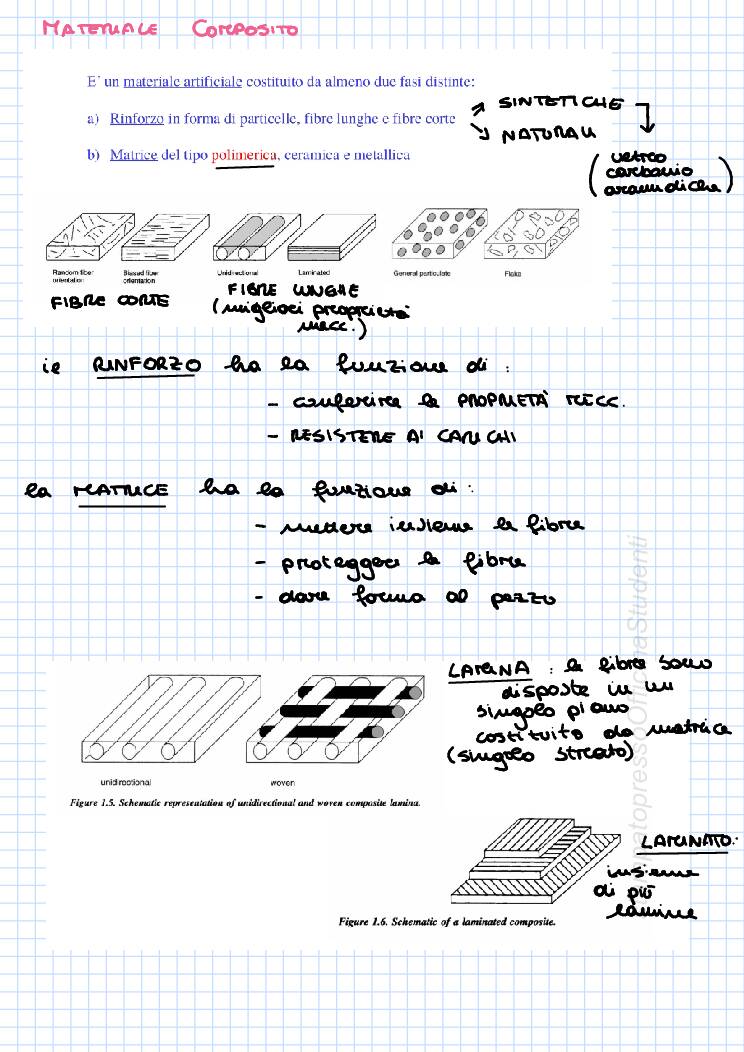 MATERIALE COMPOSITO
E' un materiale artificiale costituito da almeno due fasi distinte:
a) Rinforzo in forma di particelle, fibre lunghe e fibre corte
SINTETICHE
NATURALI
b) Matrice del tipo polimerica, ceramica e metallica
(vetro
carbonio
arammidiche)
Random fiber
orientation
Biased fiber
orientation
Unidirectional
Laminated
General particulate
Flake
FIBRE CORTE
FIBRE LUNGHE
(migliori proprietà
mecc.)
il RINFORZO ha la funzione di :
- conferire le PROPRIETÀ MECC.
- RESISTERE AI CARICHI
la MATRICE ha la funzione di :
- mettere insieme le fibre
- proteggere le fibre
- dare forma al pezzo
LAMINA : le fibre sono
disposte in un
singolo piano
costituito da matrice
(singolo strato)
unidirectional
woven
Figure 1.5. Schematic representation of unidirectional and woven composite lamina.
LAMINATO:
insieme
di più
lamine
Figure 1.6. Schematic of a laminated composite.